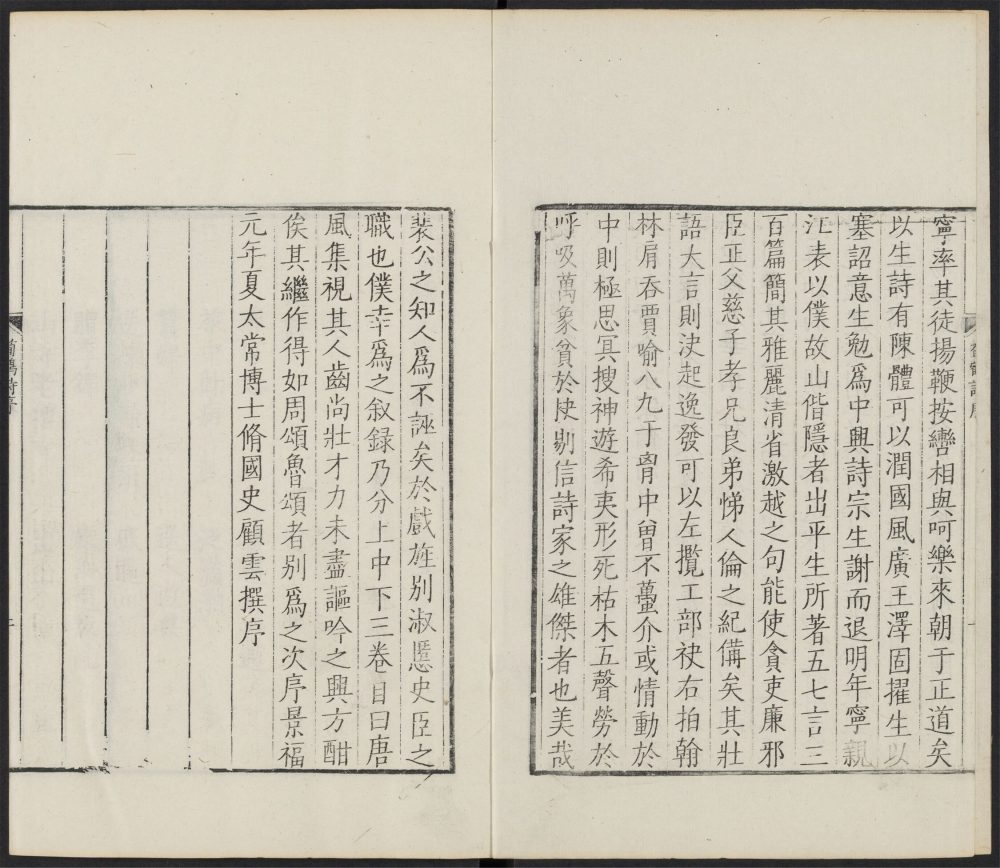 寧率其徒揚鞭按轡相與呵樂來朝于正道矣
以生詩有陳體可以潤國風廣王澤固擢生以
塞詔意生勉爲中興詩宗生謝而退明年寧親
江表以僕故山偕隱者出平生所著五七言三
百篇簡其雅麗清省激越之句能使貪吏廉邪
臣正父慈子孝兄良弟悌人倫之紀備矣其壯
語大言則决起逸發可以左攬工部袂右拍翰
林肩吞賈喻八九于胷中曾不蠆介或情動於
中則極思冥搜神遊希夷形死祐木五聲勞於
呼吸萬象貧於抉剔信詩家之雄傑者也美哉
裴公之知人爲不誣矣於戲旌别淑慝史臣之
職也僕幸爲之叙録乃分上中下三卷目曰唐
風集視其人齒尚壯才力未盡謳吟之興方酣
俟其繼作得如周頌魯頌者别爲之次序景福
元年夏太常博士脩國史顧雲撰序
鶴詩序